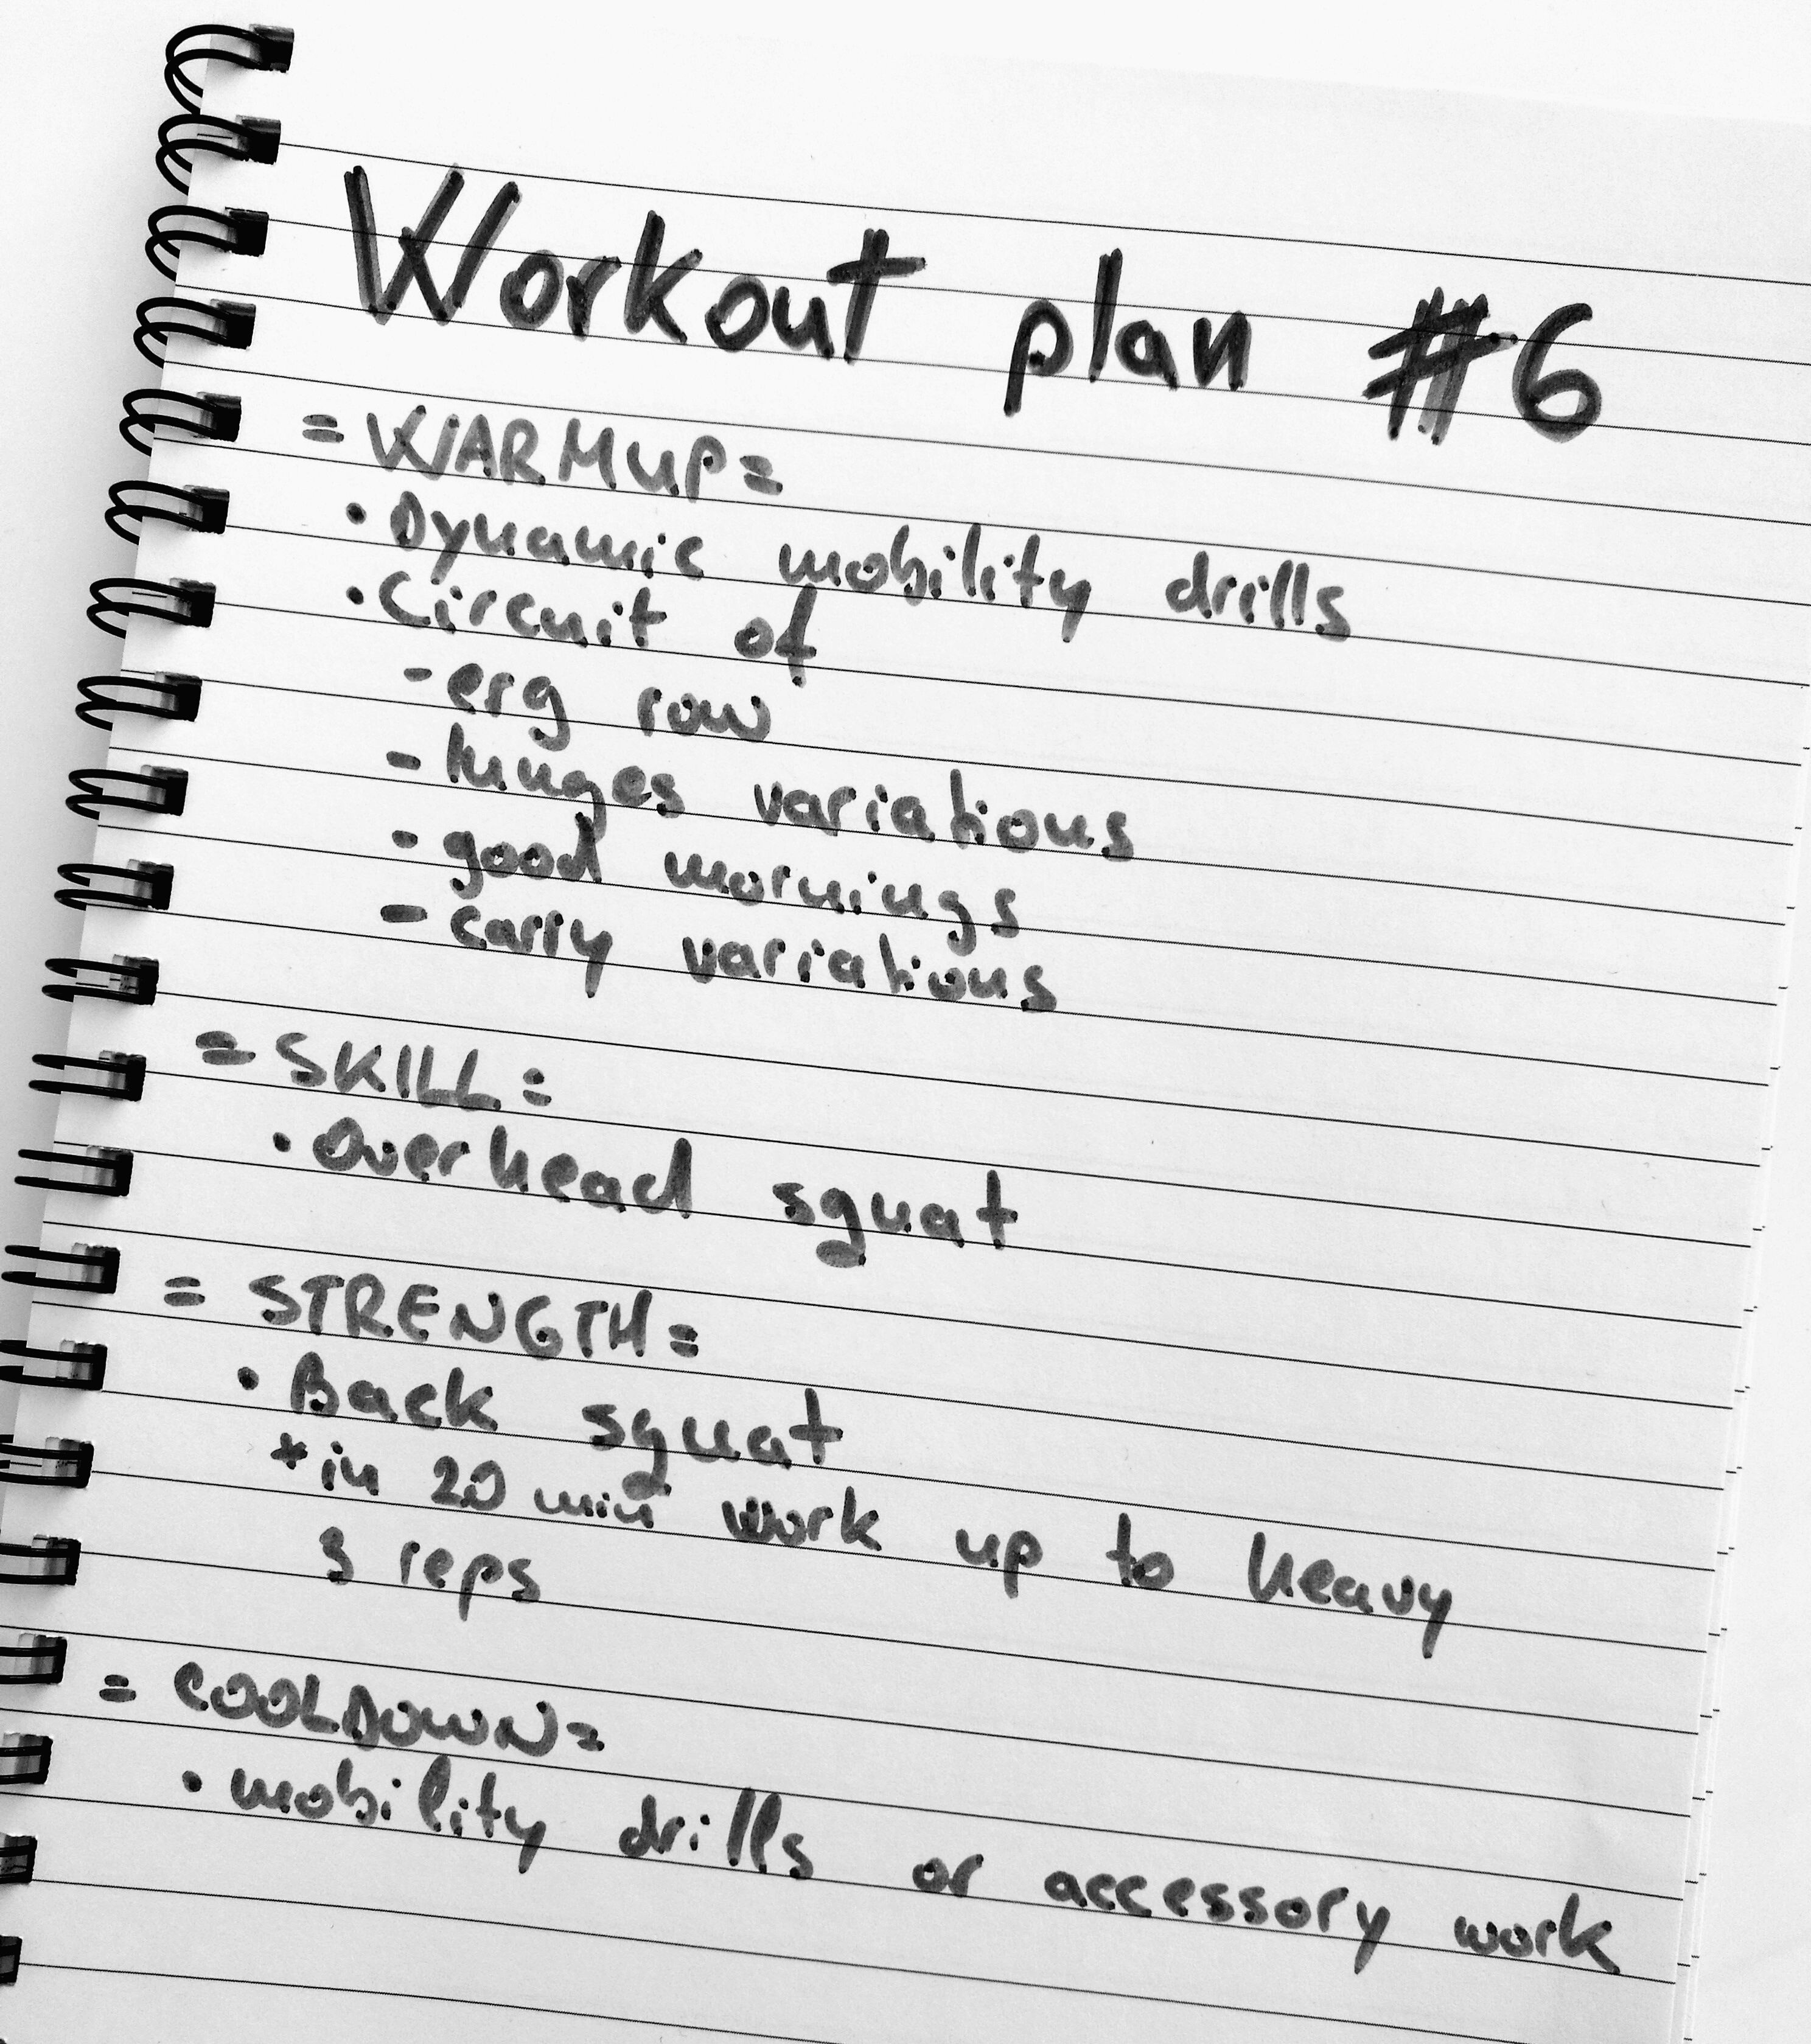 Workout plan #6
= WARMUP =
• Dynamic mobility drills
• Circuit of
- erg row
- hinges variations
- good mornings
- carry variations
= SKILL =
• Overhead squat
= STRENGTH =
• Back squat
* in 20 min work up to heavy
3 reps
= COOLDOWN =
• mobility drills or accessory work